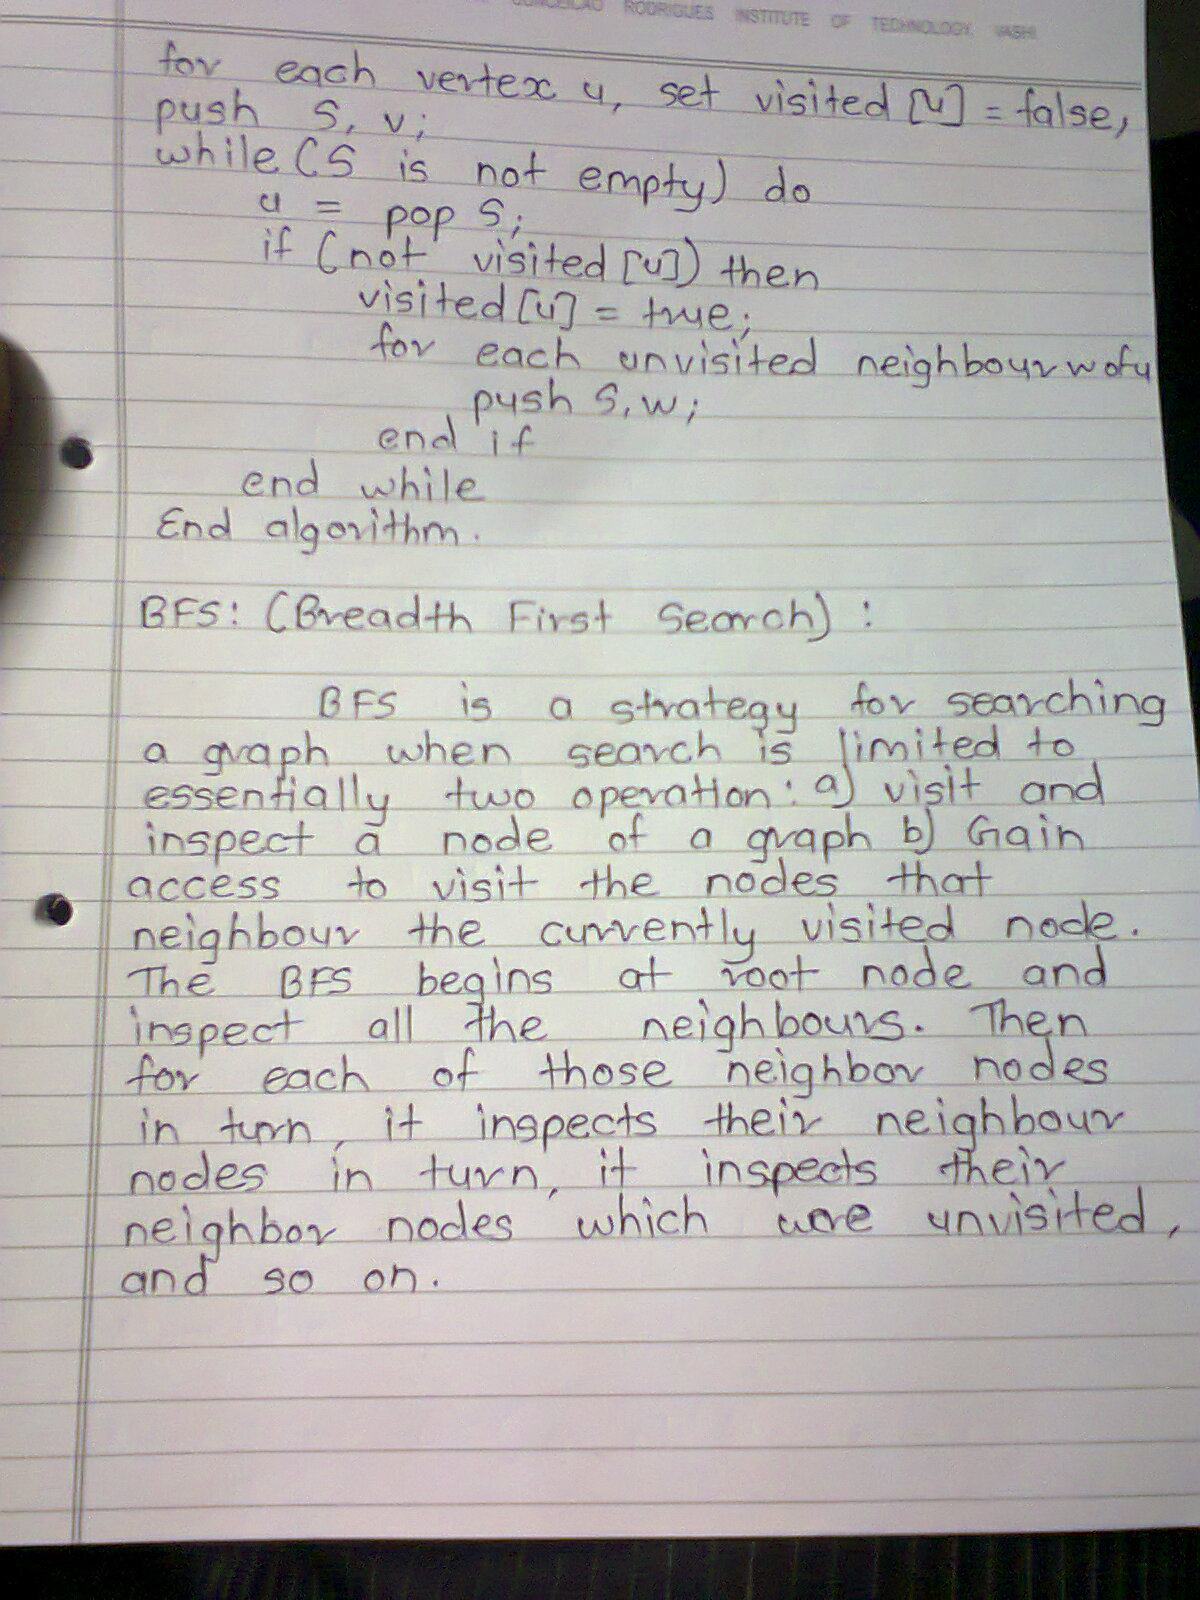 RODRIGUES INSTITUTE OF TECHNOLOGY, VASHI
for each vertex u, set visited [u] = false,
push S, v;
while (S is not empty) do
u = pop S;
if (not visited [u]) then
visited [u] = true;
for each unvisited neighbour w of u
push S, w;
end if
end while
End algorithm.
BFS: (Breadth First Search) :
BFS is a strategy for searching
a graph when search is limited to
essentially two operation: a) visit and
inspect a node of a graph b) Gain
access to visit the nodes that
neighbour the currently visited node.
The BFS begins at root node and
inspect all the neighbours. Then
for each of those neighbor nodes
in turn, it inspects their neighbour
nodes in turn, it inspects their
neighbor nodes which were unvisited,
and so on.